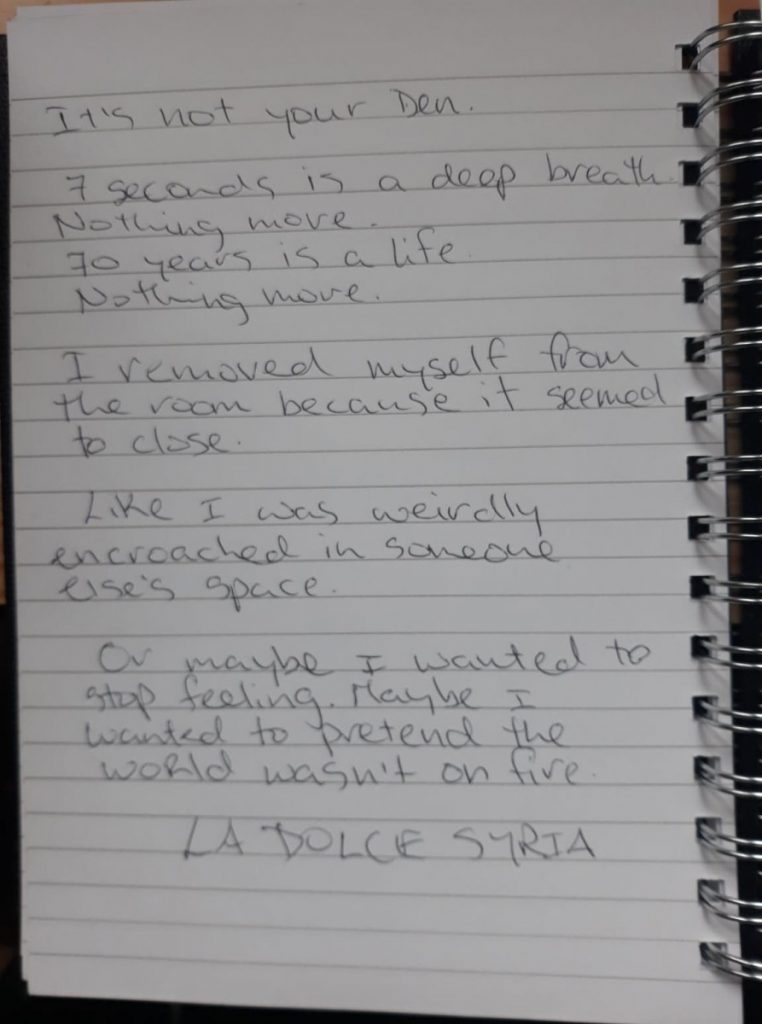 It's not your Den.
7 seconds is a deep breath.
Nothing move.
70 years is a life.
Nothing move.
I removed myself from
the room because it seemed
to close.
Like I was weirdly
encroached in someone
else's space.
Or maybe I wanted to
stop feeling. Maybe I
wanted to pretend the
world wasn't on fire.
LA DOLCE SYRIA